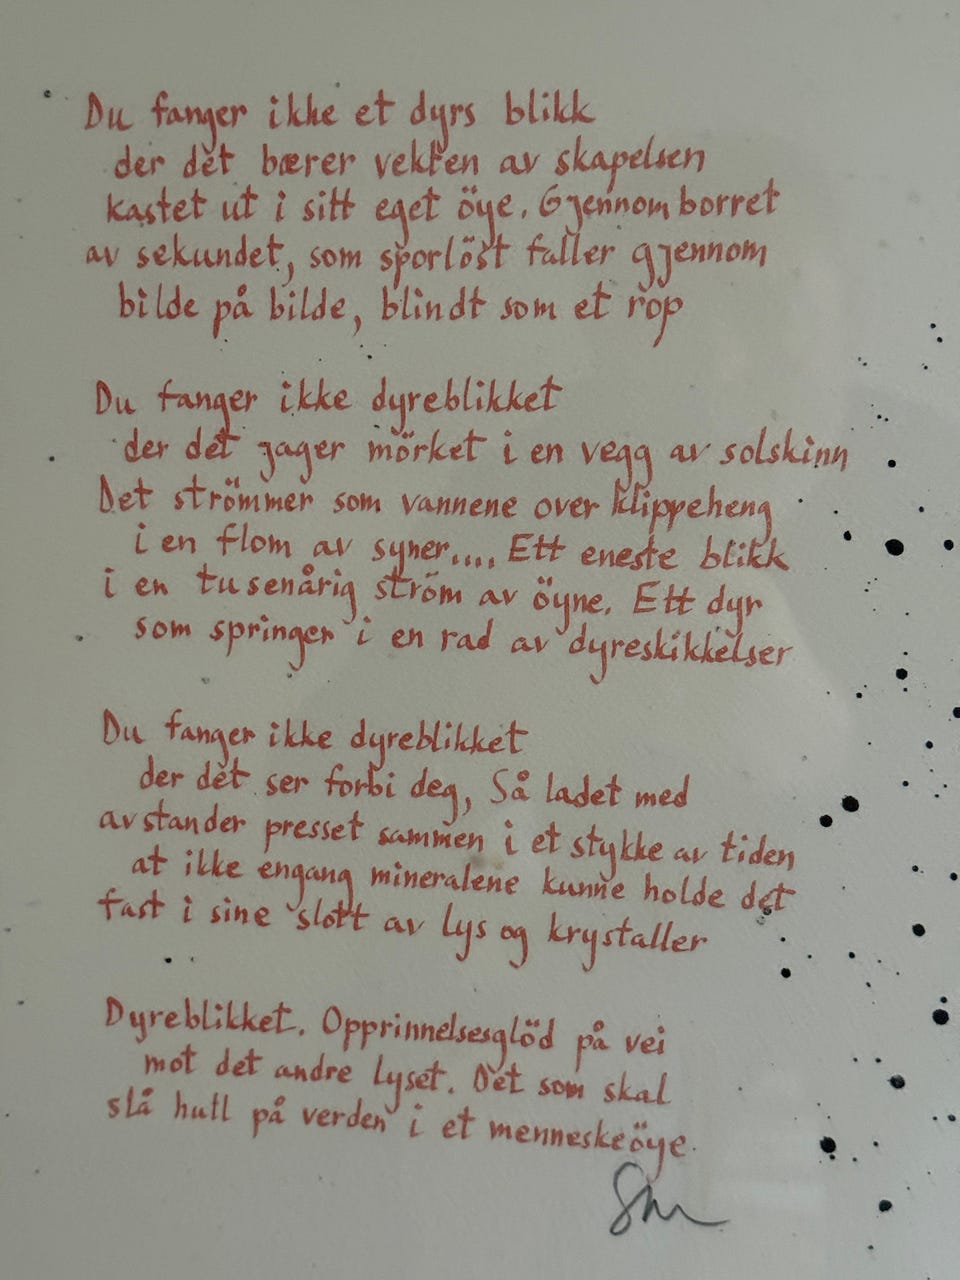 Du fanger ikke et dyrs blikk
der det bærer vekten av skapelsen
kastet ut i sitt eget öye. Gjennomborret
av sekundet, som sporlöst faller gjennom
bilde på bilde, blindt som et rop
Du fanger ikke dyreblikket
der det jager mörket i en vegg av solskinn
Det strömmer som vannene over klippeheng
i en flom av syner.... Ett eneste blikk
i en tusenårig ström av öyne. Ett dyr
som springer i en rad av dyreskikkelser
Du fanger ikke dyreblikket
der det ser forbi deg, Så ladet med
avstander presset sammen i et stykke av tiden
at ikke engang mineralene kunne holde det
fast i sine slott av lys og krystaller
Dyreblikket. Opprinnelsesglöd på vei
mot det andre lyset. Det som skal
slå hull på verden i et menneskeöye.